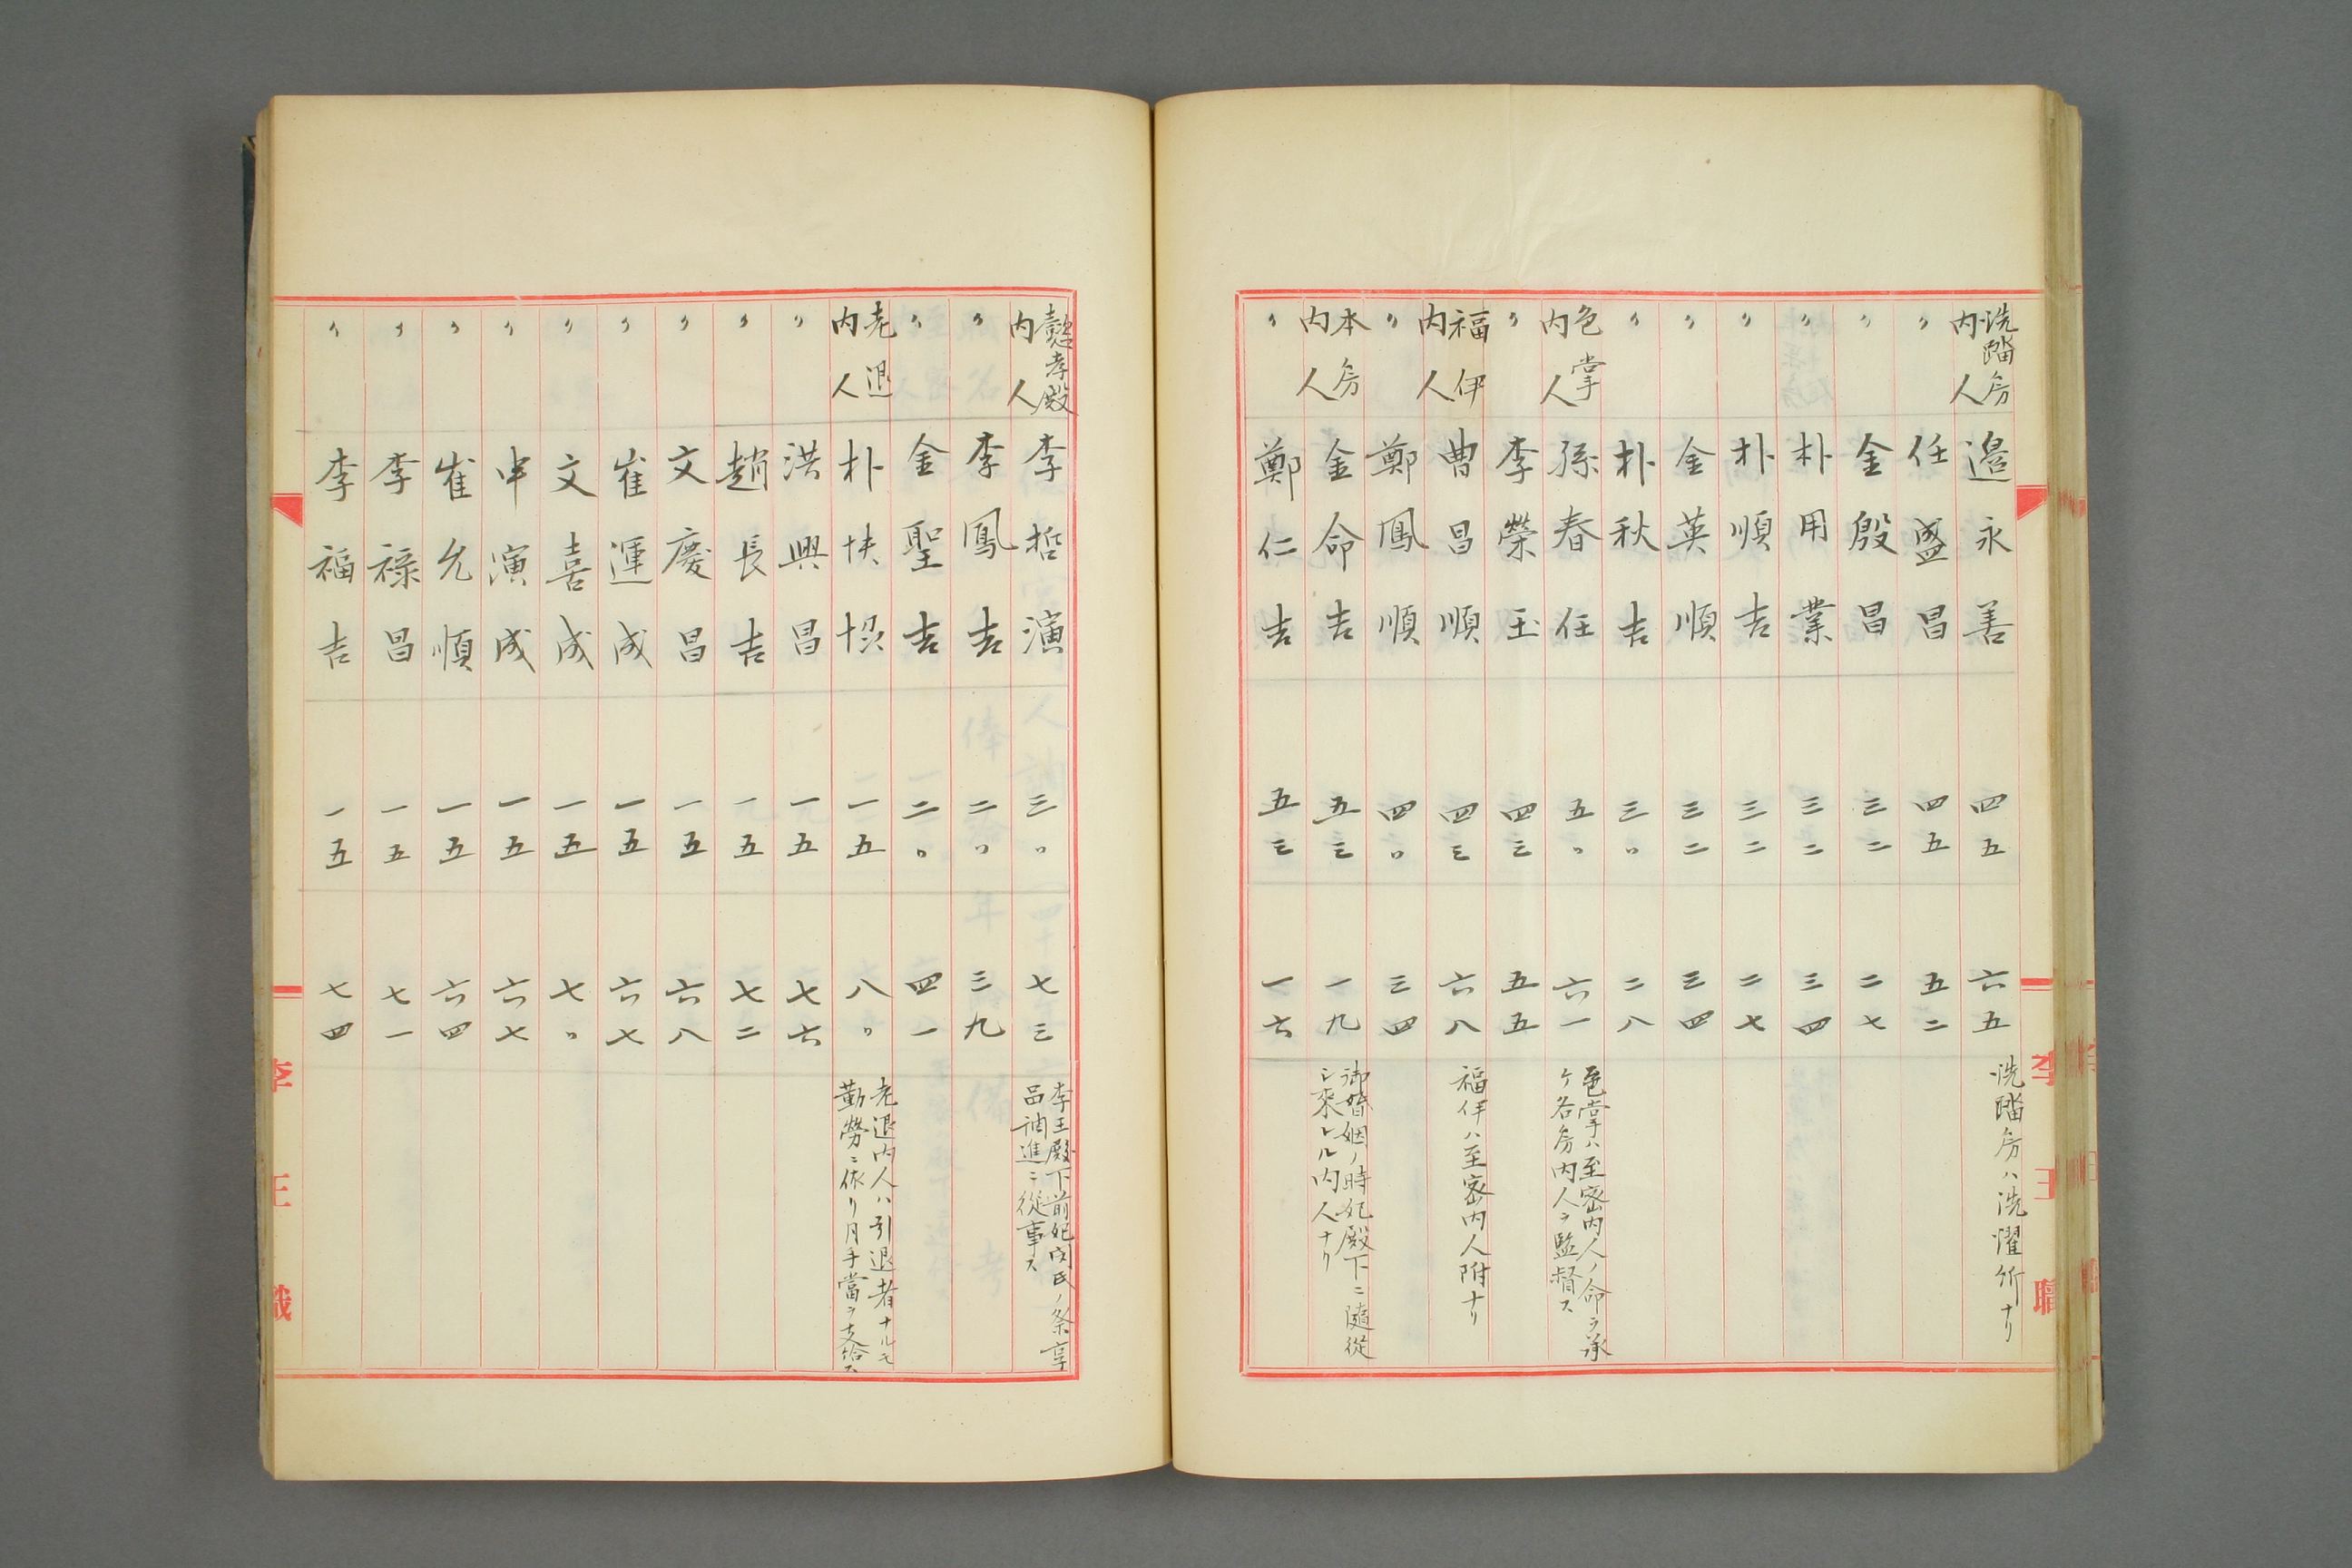 洗踏房内人 邉永善 四五 六五 洗踏房ハ洗濯所ナリ
〃 任盛昌 四五 五二
〃 金殷昌 三二 二七
〃 朴用業 三二 三四
〃 朴順吉 三二 二七
〃 金英順 三二 三四
〃 朴秋吉 三〇 二八
色掌内人 孫春任 五〇 六一 色掌ハ至密内人ノ命ヲ承
ケ各房内人ヲ監督ス
〃 李榮玉 四三 五五
福伊内人 曹昌順 四三 六八 福伊ハ至密内人附ナリ
〃 鄭鳳順 四〇 三四
本房内人 金命吉 五三 一九 御婚姻ノ時妃殿下ニ隨從
シ來レル内人ナリ
〃 鄭仁吉 五三 一六
李王職
懿孝殿内人 李哲演 三〇 七三 李王殿下前妃閔氏ノ祭享
品調進ニ從事ス
〃 李鳳吉 二〇 三九
〃 金聖吉 二〇 四一
老退内人 朴快 一五 八〇 老退内人ハ引退者ナルモ
勤勞ニ依リ月手當ヲ支給ス
〃 洪興昌 一五 七六
〃 趙長吉 一五 七二
〃 文慶昌 一五 六八
〃 崔運成 一五 六七
〃 文喜成 一五 七〇
〃 申演成 一五 六七
〃 崔允順 一五 六四
〃 李祿昌 一五 七一
〃 李福吉 一五 七四
李王職